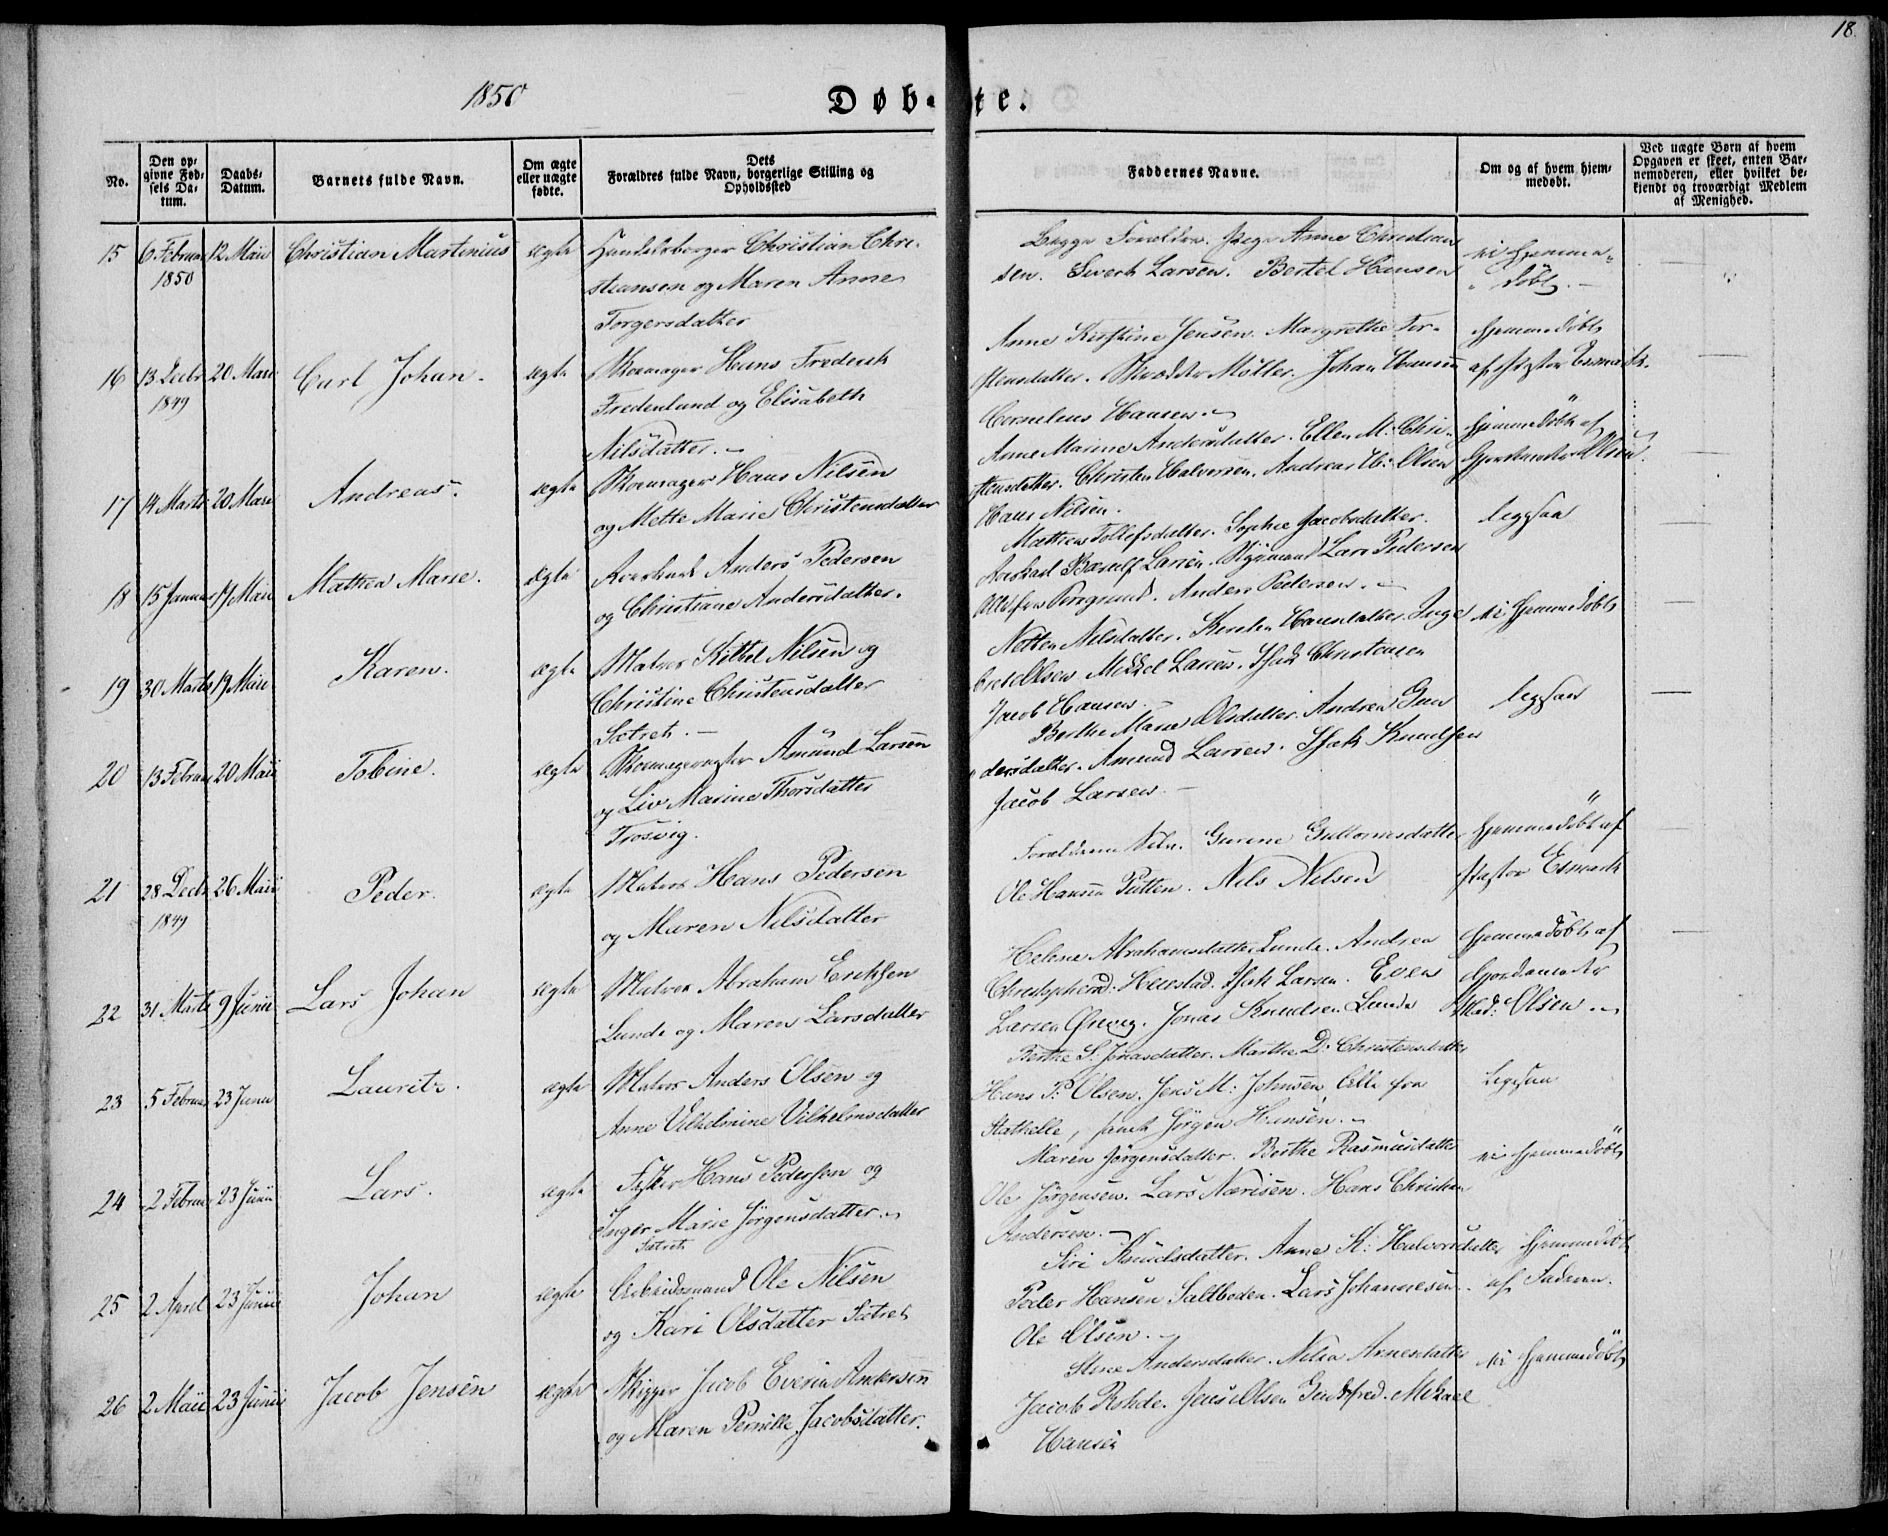 18.
1850
Døb- te.
No.
Den op-
givne Fød-
sels Da-
tum.
Daabs-
Datum.
Barnets fulde Navn.
Om ægte
eller uægte
fødte.
Dets
Forældres fulde Navn, borgerlige Stilling og
Opholdsted
Faddernes Navne.
Om og af hvem hjem-
medøbt.
Ved uægte Børn af hvem
Opgaven er skeet, enten Bar-
nemoderen, eller hvilket be-
kjendt og troværdigt Medlem
af Menighed.
15 6 Februar 12 Maii Christian Martinius ægte Handelsborger Christian Chri-
1850 stiansen og Maren Anne
Torgersdatter
Begge Forældre. Anne Christian
sen. Sivert Larsen. Bertel Hansen
ei hjemme
døbt.
16 13 Decbr 20 Marts Carl Johan. ægte Skomager Hans Frederik
1849 Fredenlund og Elisabeth
Nilsdatter.
Anne Kirstine Jensen. Margrethe Tor-
stensdatter. Skrædder Møller. Johan Hansen
Cornelius Hansen.
hjemmedøbt
af Pastor Esmark.
17 14 Marts 20 Marts Andreas. ægte Skomager Hans Nilsen
og Mette Marie Christensdatter
Anne Marine Andersdatter. Ellen M. Chri-
stensdatter. Christen Halvorsen. Andreas H. Olsen
Hans Nilsen.
hjemmedøbt af
Gjordemoder Olsen.
18 15 Januar 19 Maii Mathea Marie. ægte Anders Pedersen
og Christiane Andersdatter.
Tollefsdatter. Sophie Jacobsdatter.
Larsen. Lars Pedersen
Anders Pedersen.
ligesaa
19 30 Marts 19 Maii Karen. ægte Matros Kittel Nilsen og
Christine Christensdatter
Sætret.
Nilsdatter. Hansdatter. Inge
bret Olsen. Mikkel Larsen. Isak Christensen
Jacob Hansen.
ei hjemmedøbt
20 13 Februar 20 Maii Tobine. ægte Amund Larsen
og Liv Marine Thorsdatter
Trosvig.
Berthe Marie Olsdatter. Andrea Gun
dersdatter. Amund Larsen. Isak Knudsen
Jacob Larsen.
ligesaa
21 28 Decbr 26 Maii Peder. ægte Matros Hans Pedersen
1849 og Maren Nilsdatter
Forældrene selv. Gurine Guttormsdatter
Ole Hansen Putten. Nils Nilsen
hjemmedøbt af
Pastor Esmark
22 31 Marts 9 Junii Lars Johan ægte Matros Abraham Erichsen
Lunde og Maren Larsdatter
Helene Abrahamsdatter Lunde. Andrea
Christophersd. Herrestad. Isak Larsen. Even
Larsen Ørevig. Jonas Knudsen Lunde
hjemmedøbt af
Gjordemoder
Mad: Olsen
23 5 Februar 23 Junii Lauritz. ægte Matros Anders Olsen og
Anne Vilhelmine Vilhelmsdatter
Berthe S. Jonasdatter. Marthe D. Christensdatter
Hans P. Olsen. Jens M. Johnsen, Alle fra
Stathelle, samt Jørgen Hansen.
Ligesaa
24 2 Februar 23 Junii Lars. ægte Fisker Hans Pedersen og
Inger Marie Jørgensdatter
Sætret
Maren Jørgensdatter. Berthe Rasmusdatter
Ole Jørgensen. Lars Nærisen. Hans Christian
Andersen.
ei hjemmedøbt
25 2 April 23 Junii Johan ægte Arbeidsmand Ole Nilsen
og Kari Olsdatter Sætret
Siri Knudsdatter. Anne K. Halvorsdatter
Peder Hansen Saltboden. Lars Johannesen.
Ole Olsen.
hjemmedøbt
af Faderen.
26 2 Maii 23 Junii Jacob Jensen ægte Skipper Jacob Everin Andersen
og Maren Pernille Jacobsdatter.
Stine Andersdatter. Arnesdatter
Jacob Rohde. Jens Olsen Gudsfred. Mikael
Hansen
ei hjemmedøbt